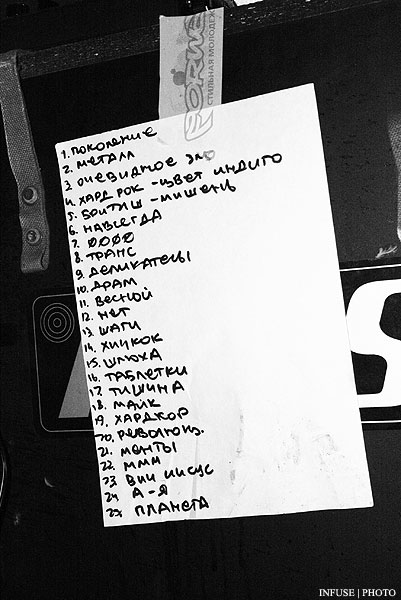 PORNO
СТИЛЬНАЯ МОЛОДЕЖ
1. ПОКОЛЕНИЕ
2. МЕТАЛЛ
3. ОЧЕВИДНОЕ ЗЛО
4. ХАРД РОК - ЦВЕТ ИНДИГО
5. БРИТИШ - МИШЕНЬ
6. НАВСЕГДА
7. 0000
8. ТРАНС
9. ДЕЛИКАТЕСЫ
10. ДРАМ
11. ВЕСНОЙ
12. НЕТ
13. ШАГИ
14. ХИЧКОК
15. ШЛЮХА
16. ТАБЛЕТКИ
17. ТИШИНА
18. МАЙК
19. ХАРДКОР
20. РЕВОЛЮЦ.
21. МЕНТЫ
22. МММ
23 ВИЧ ИИСУС
24. А-Я
25. ПЛАНЕТА
S
INFUSE | PHOTO